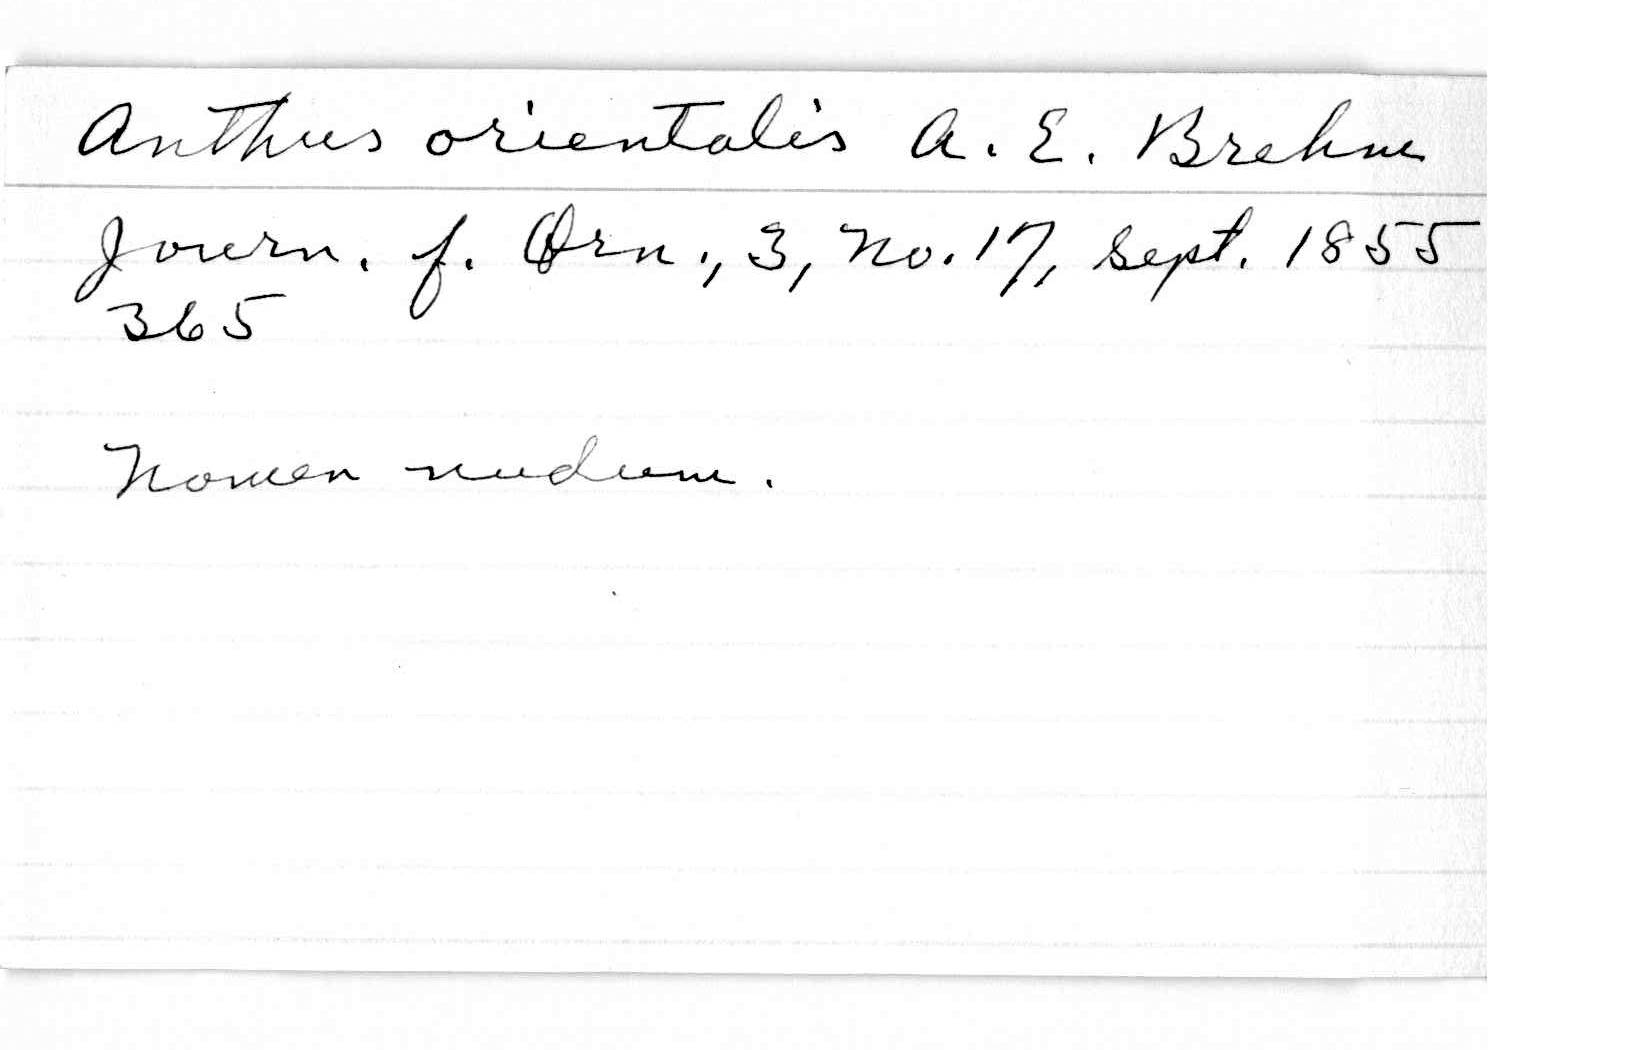 Anthus orientalis A. E. Brehm
Journ. f. Orn., 3, No. 17, Sept. 1855
365
Nomen nudum.